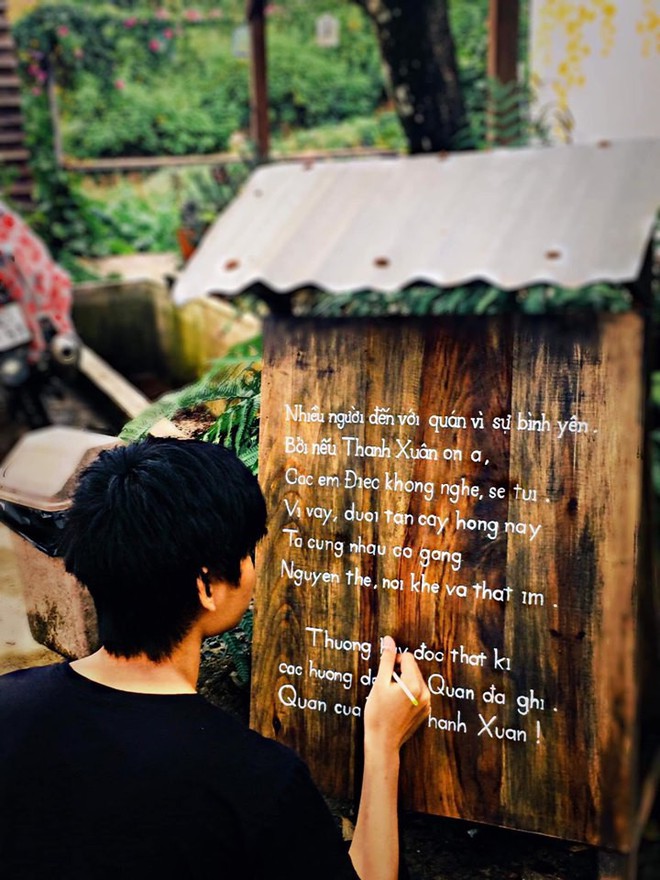 Nhiều người đến với quán vì sự bình yên.
Bởi nếu Thanh Xuân on a,
Cac em Điec khong nghe, se tui.
Vi vay, duoi tan cay hong nay
Ta cung nhau co gang
Nguyen the, noi khe va that im.
Thuong đoc that ki
cac huong Quan đa ghi.
Quan cua hanh Xuan!